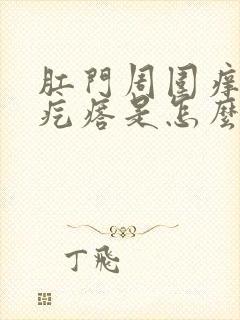 肛門周围痒
疙瘩是怎麼
丁飛